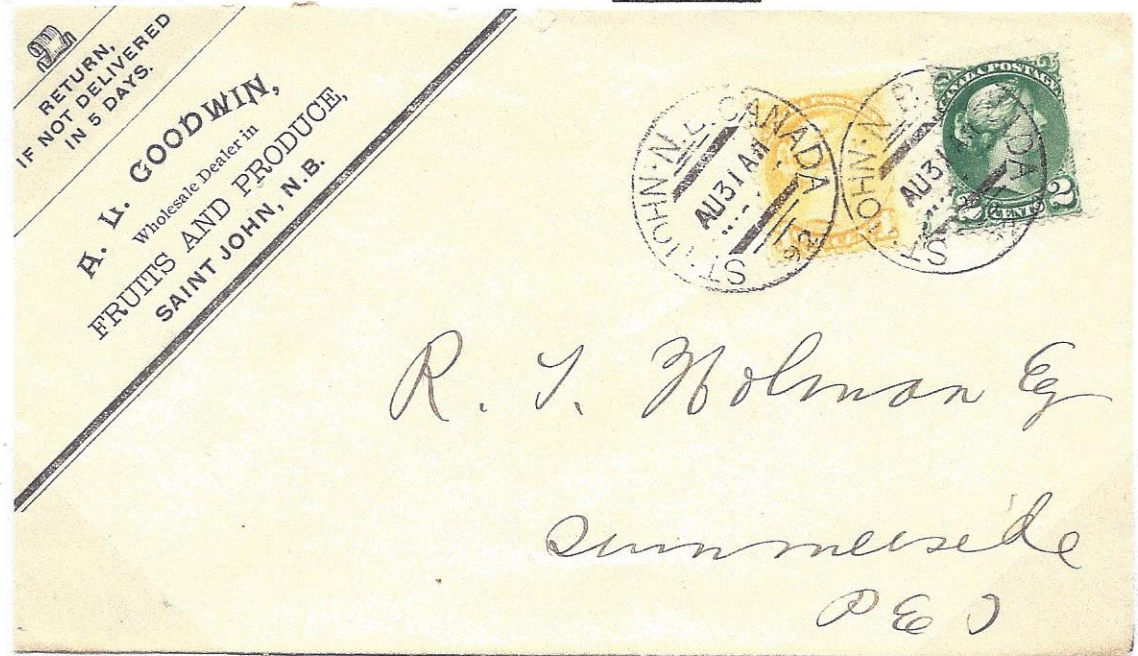 RETURN,
IF NOT DELIVERED
IN 5 DAYS.
A. L. GOODWIN,
Wholesale Dealer in
FRUITS AND PRODUCE,
SAINT JOHN, N.B.
ST. JOHN. N.B. CANADA
AU 31 AM
92
ST. JOHN. N.B. CANADA
AU 31
CANADA POSTAGE
2
R. T. Holman Esq
Summerside
P E I